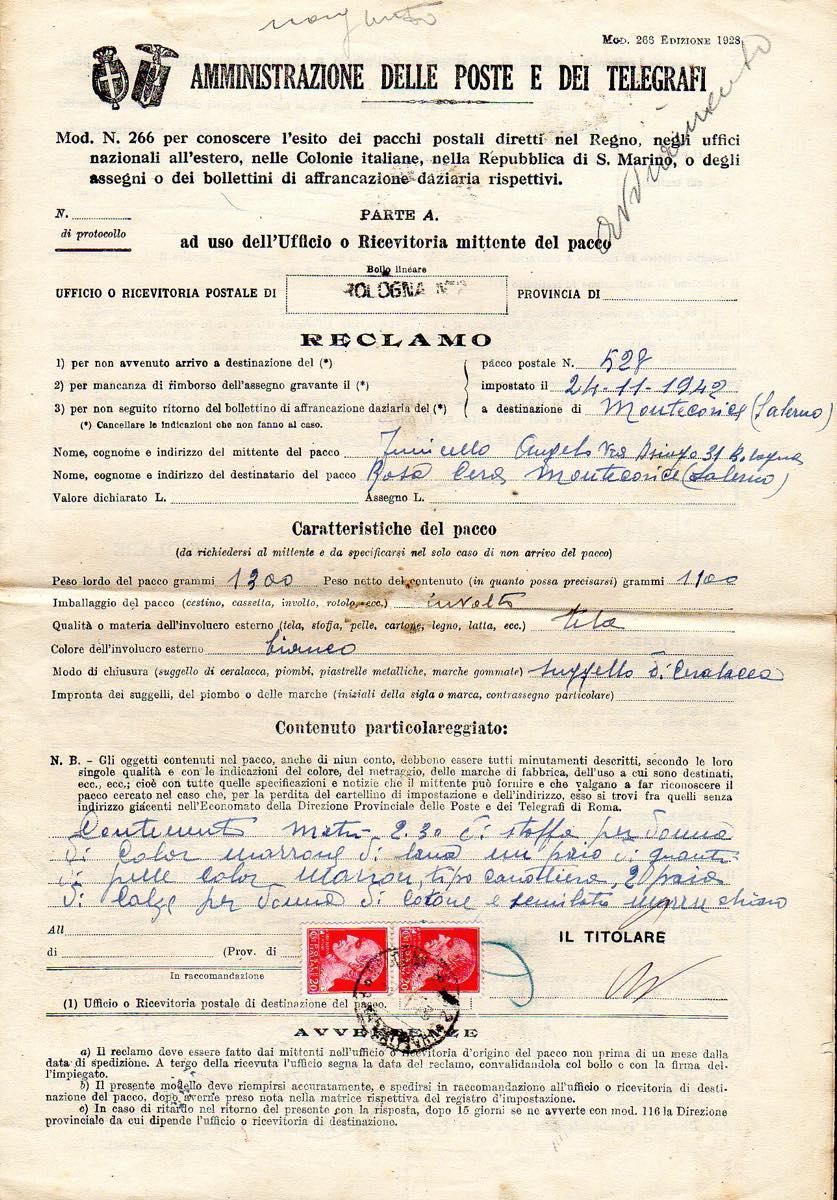 Mod. 266 Edizione 1928
AMMINISTRAZIONE DELLE POSTE E DEI TELEGRAFI
Mod. N. 266 per conoscere l'esito dei pacchi postali diretti nel Regno, negli uffici
nazionali all'estero, nelle Colonie italiane, nella Repubblica di S. Marino, o degli
assegni o dei bollettini di affrancazione daziaria rispettivi.
N.
di protocollo
PARTE A.
ad uso dell'Ufficio o Ricevitoria mittente del pacco
Bollo lineare
UFFICIO O RICEVITORIA POSTALE DI BOLOGNA PROVINCIA DI
RECLAMO
1) per non avvenuto arrivo a destinazione del (*) pacco postale N. 528
2) per mancanza di rimborso dell'assegno gravante il (*) impostato il 24-11-1942
3) per non seguito ritorno del bollettino di affrancazione daziaria del (*) a destinazione di Montecorice (Salerno)
(*) Cancellare le indicazioni che non fanno al caso.
Nome, cognome e indirizzo del mittente del pacco Angelo Via 31 Bologna
Nome, cognome e indirizzo del destinatario del pacco Rosa Cera Montecorice (Salerno)
Valore dichiarato L. Assegno L.
Caratteristiche del pacco
(da richiedersi al mittente e da specificarsi nel solo caso di non arrivo del pacco)
Peso lordo del pacco grammi 1300 Peso netto del contenuto (in quanto possa precisarsi) grammi 1100
Imballaggio del pacco (cestino, cassetta, involto, rotolo, ecc.) involto
Qualità o materia dell'involucro esterno (tela, stoffa, pelle, cartone, legno, latta, ecc.) tela
Colore dell'involucro esterno bianco
Modo di chiusura (suggello di ceralacca, piombi, piastrelle metalliche, marche gommate) suggello di Ceralacca
Impronta dei suggelli, del piombo o delle marche (iniziali della sigla o marca, contrassegno particolare)
Contenuto particolareggiato:
N. B. - Gli oggetti contenuti nel pacco, anche di niun conto, debbono essere tutti minutamenti descritti, secondo le loro
singole qualità e con le indicazioni del colore, del metraggio, delle marche di fabbrica, dell'uso a cui sono destinati,
ecc., ecc.; cioè con tutte quelle specificazioni e notizie che il mittente può fornire e che valgano a far riconoscere il
pacco cercato nel caso che, per la perdita del cartellino di impostazione e dell'indirizzo, esso si trovi fra quelli senza
indirizzo giacenti nell'Economato della Direzione Provinciale delle Poste e dei Telegrafi di Roma.
Contenente metri 2.30 di stoffa per donna
di color marrone di lana un paio di guanti
di pelle color marron, tipo canottiera, 20 paia
di calze per donna di cotone e chiaro
All
di (Prov. di
IL TITOLARE
In raccomandazione
(1) Ufficio o Ricevitoria postale di destinazione del pacco.
AVVERTENZE
a) Il reclamo deve essere fatto dai mittenti nell'ufficio o ricevitoria d'origine del pacco non prima di un mese dalla
data di spedizione. A tergo della ricevuta l'ufficio segna la data del reclamo, convalidandola col bollo e con la firma del-
l'impiegato.
b) Il presente modello deve riempirsi accuratamente, e spedirsi in raccomandazione all'ufficio o ricevitoria di desti-
nazione del pacco, dopo averne preso nota nella matrice rispettiva del registro d'impostazione.
c) In caso di ritardo nel ritorno del presente con la risposta, dopo 15 giorni se ne avverte con mod. 116 la Direzione
provinciale da cui dipende l'ufficio o ricevitoria di destinazione.